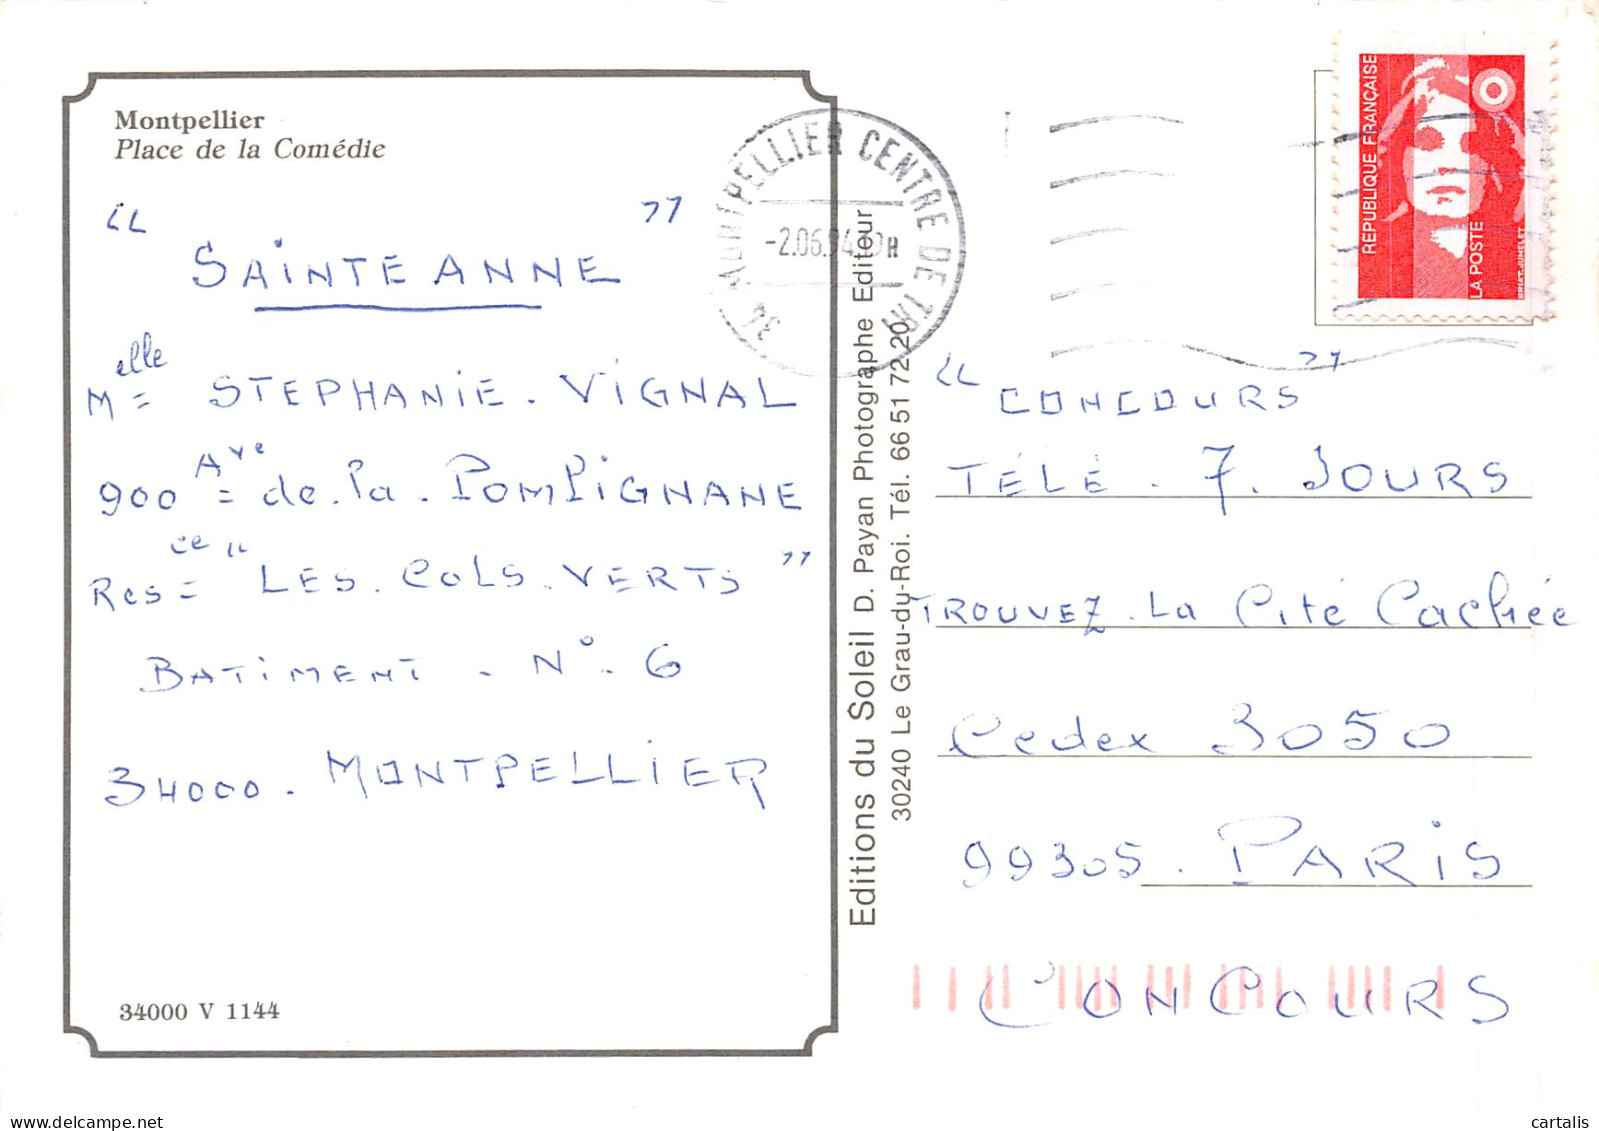 Montpellier
Place de la Comédie
“ SAINTE ANNE ”
Melle = STEPHANIE. VIGNAL
900 Ave = de. la. POMPIGNANE
Resce = “ LES. COLS. VERTS ”
BATIMENT. N°. 6
34000. MONTPELLIER
34000 V 1144
Editions du Soleil D. Payan Photographe Editeur
30240 Le Grau-du-Roi. Tél. 66 51 72 20
34 MONTPELLIER CENTRE DE TRI
-2.06.94
REPUBLIQUE FRANÇAISE
LA POSTE
BRIAT. JUMELET
“ CONCOURS ”
TÉLÉ. 7. JOURS
TROUVEZ. La Cité Cachée
Cedex 3050
99305. PARIS
CONCOURS
cartalis